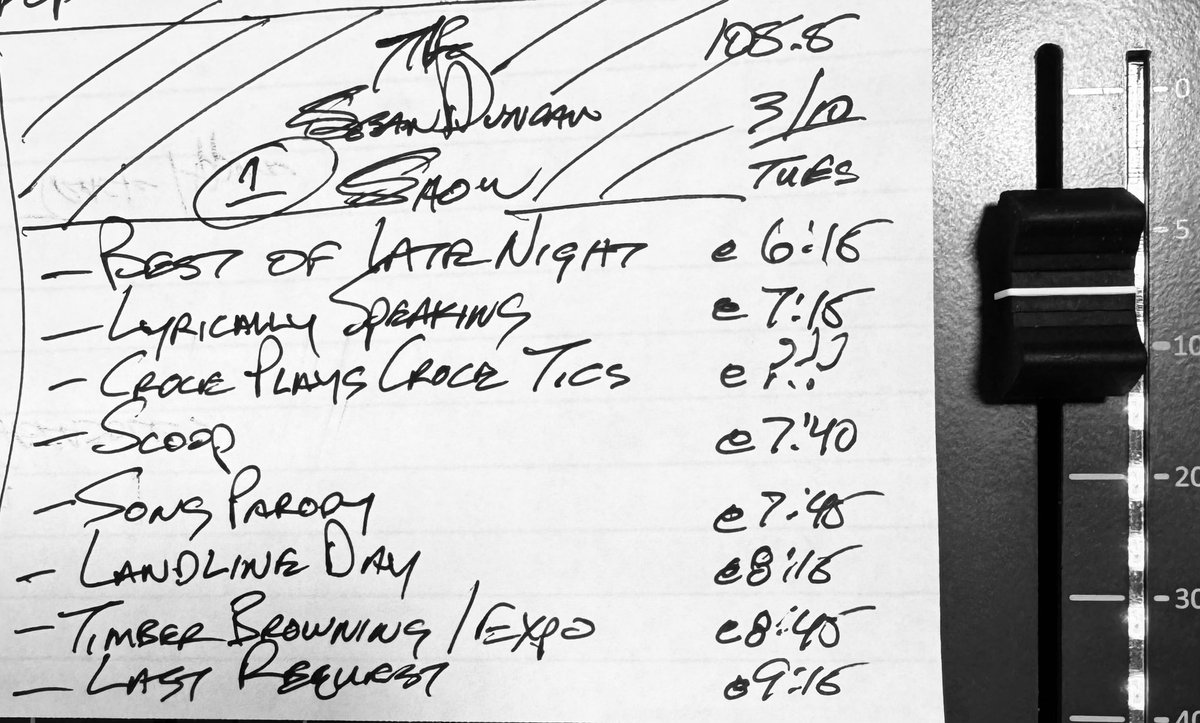 The 105.5
Sean Duncan 3/10
1 Show Tues
- Best of Late Night @ 6:15
- Lyrically Speaking @ 7:15
- Croce Plays Croce Tics @ ???
- Scoop @ 7:40
- Song Parody @ 7:45
- Landline Day @ 8:15
- Timber Browning / Expo @ 8:45
- Last Request @ 9:15
0
5
10
20
30
40